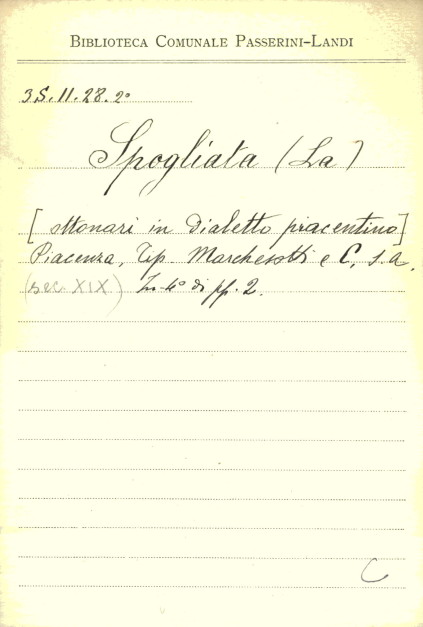 BIBLIOTECA COMUNALE PASSERINI-LANDI
3S.11.28.2°
Spogliata (La)
[ottonari in dialetto piacentino]
Piacenza, Tip. Marchesotti e C, s.a.
(sec. XIX) In-4° di pp. 2.
C